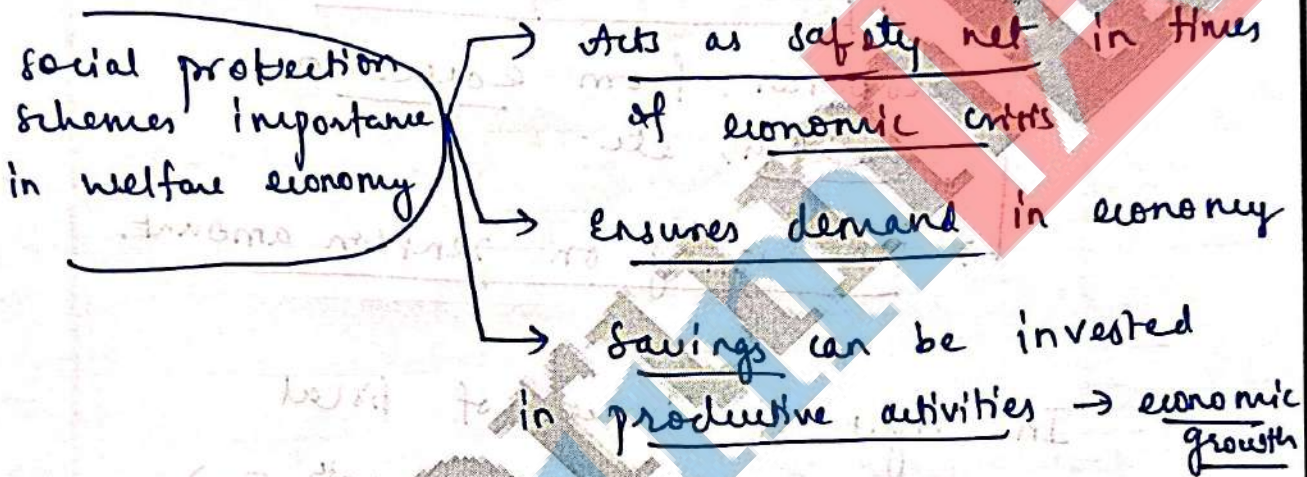 social protection
schemes importance
in welfare economy
→ Acts as safety net in times
of economic crisis
→ Ensures demand in economy
→ Savings can be invested
in productive activities → economic
growth